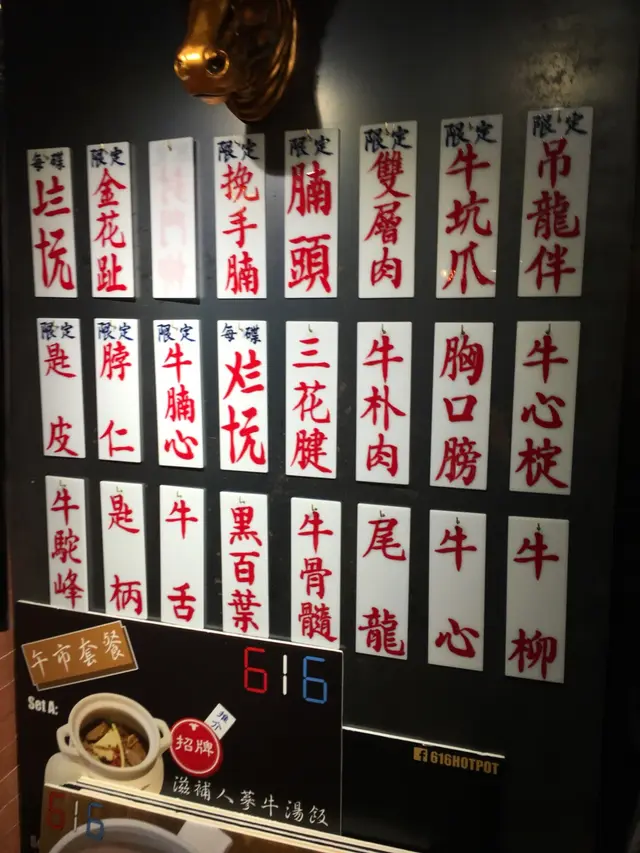 每碟
限定
金花趾
限定
挽手腩
限定
腩頭
限定
雙層肉
限定
牛坑爪
限定
吊龍伴
限定
匙皮
限定
脖仁
限定
牛腩心
每碟
三花腱
牛朴肉
胸口膀
牛心椗
牛駝峰
匙柄
牛舌
黑百葉
牛骨髓
尾龍
牛心
牛柳
午市套餐
616
Set A:
推介
招牌
滋補人參牛湯飯
616HOTPOT
616